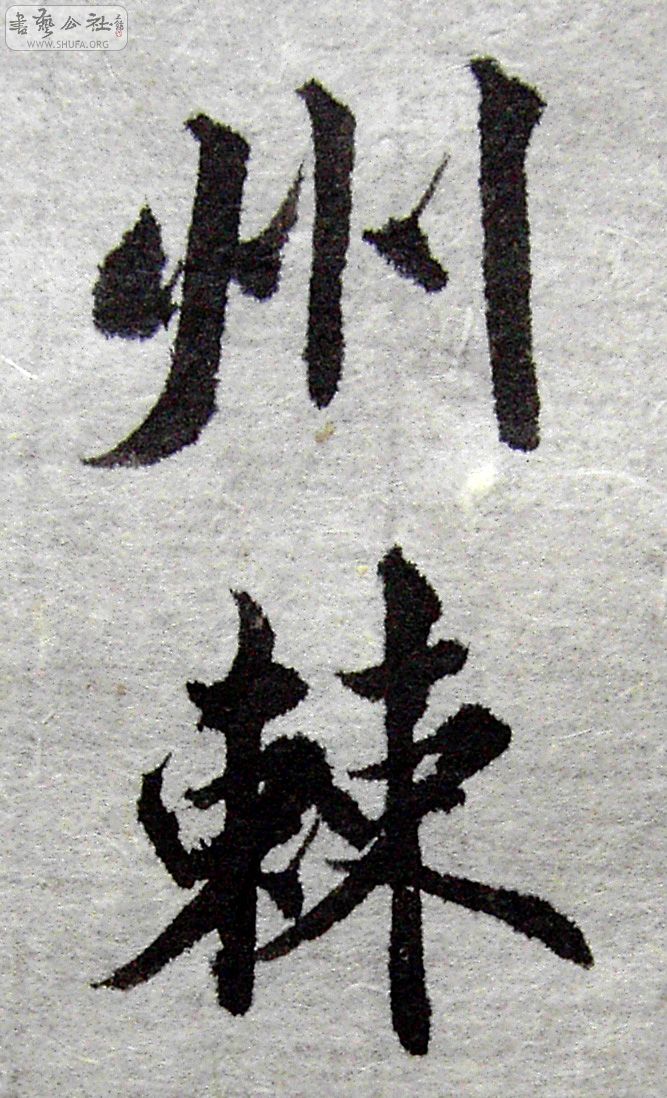 書藝公社
WWW.SHUFA.ORG
州
棘